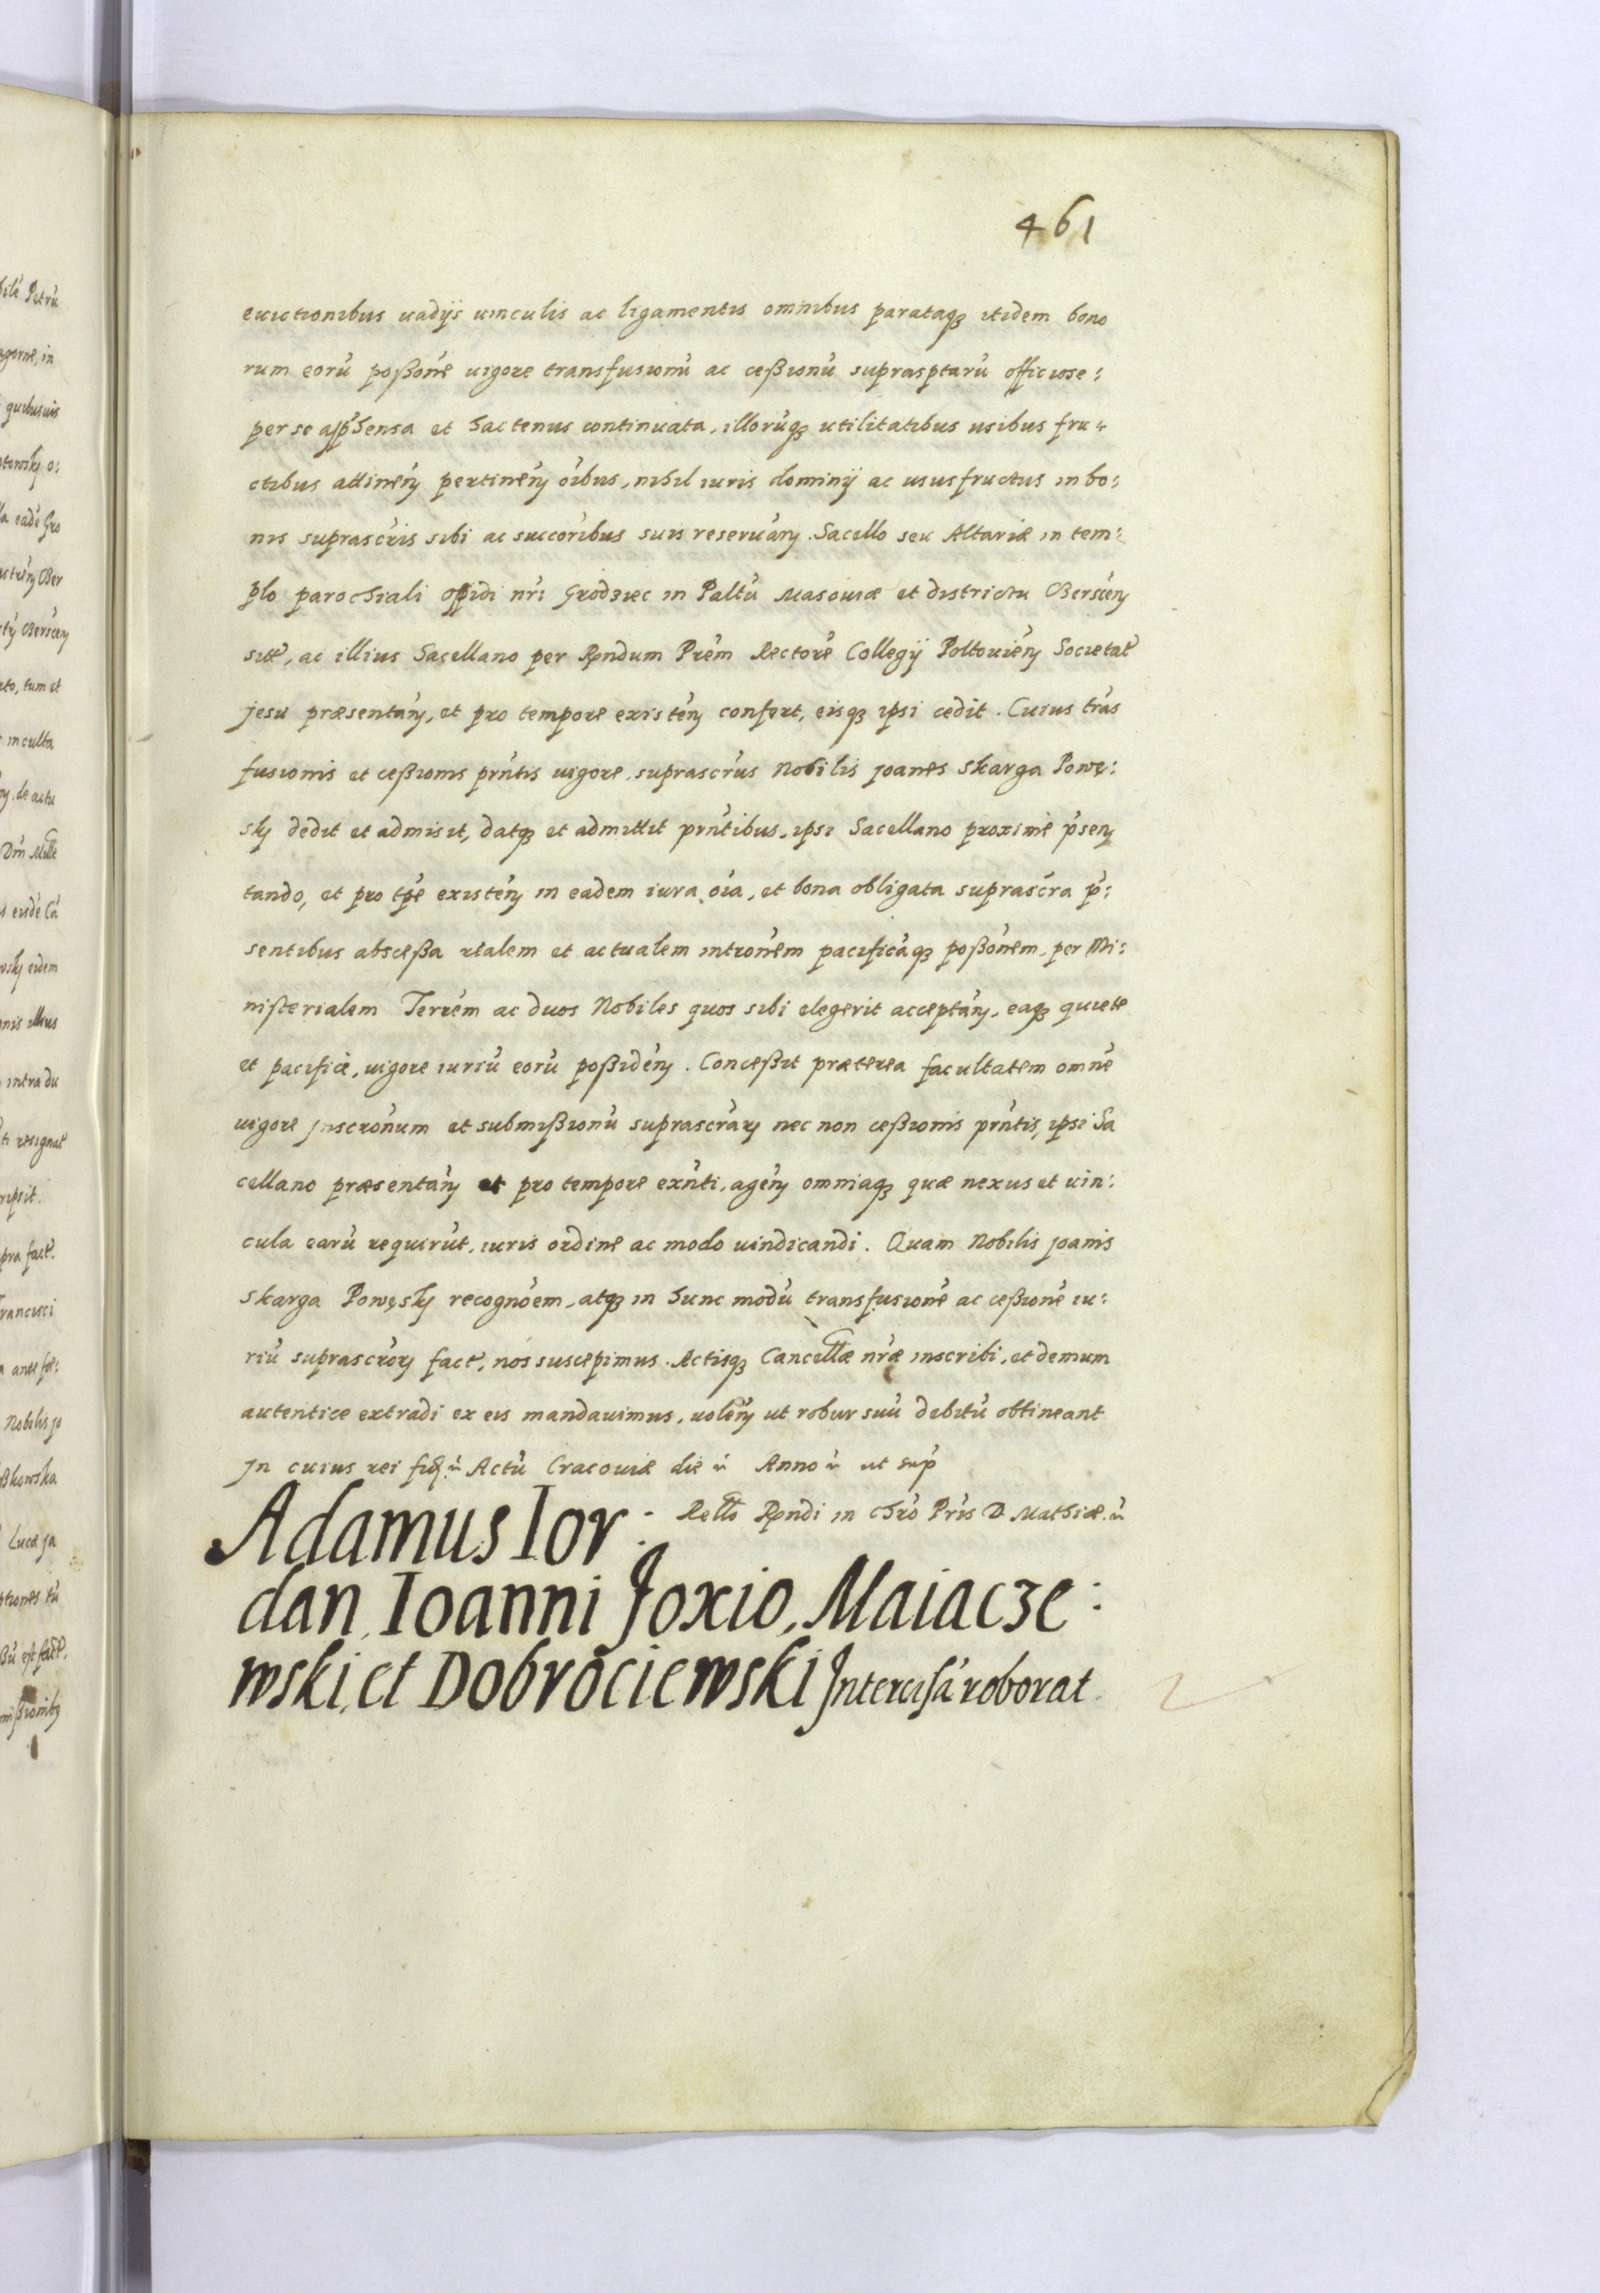 461
euictionibus uadijs uinculis ac ligamentis omnibus parataq3 itidem bono
rum eorū poßōne uigore transfusionū ac ceßionū suprasptarū officiose:
per se apphensa et hactenus continuata, illorūq3 utilitatibus usibus fru:
ctibus attinēn pertinēn oībus, nihil iuris dominij ac ususfructus in bo:
nis suprascris sibi ac succoribus suis reseruān. Sacello seu Altariæ in tem:
plo parochiali oppidi nrī Grodziec in Paltū Masouiæ et districtu Bersten
site, ac illius Sacellano per Rndum Prēm Rectorē Collegij Poltouiēn Societat
jesu præsentān, et pro tempore existēn confert, eisq3 ipsi cedit. Cuius trās
fusionis et ceßionis prntis uigore, suprascrūs Nobilis joanes Skarga Powę:
sky dedit et admisit, datq3 et admittit prntibus, ipsi Sacellano proximē p̄sen
tando, et pro tpe existēn in eadem iura oīa, et bona obligata suprascra p̄:
sentibus absceßa realem et actualem intronēm pacificāq3 poßōnem, per Mi:
nisterialem Terrēm ac duos Nobiles quos sibi elegerit acceptān, eaq3 quiete
et pacificè, uigore iuriū eorū poßidēn. Conceßit præterea facultatem omnē
uigore jnscronum et submißionū suprascrarū nec non ceßionis prntis, ipsi Sa
cellano præsentān et pro tempore exnti, agēn omniaq3 quæ nexus et uin:
cula earū requirūt, iuris ordine ac modo uindicandi. Quam Nobilis joanis
Skarga Powęsky recognōem, atq3 in hunc modū transfusionē ac ceßionē iu:
riū suprascrorū fact, nos suscepimus. Actisq3 Cancellæ nræ inscribi, et demum
autentice extradi ex eis mandauimus, uolēn ut robur suū debitū obtineant
Jn cuius rei fid. Actū Cracouiæ die Anno ut sup
Rello Rndi in Chrō Pris D Mathiæ
Adamus Ior:
dan, Ioanni Foxio, Maiacze:
wski, et Dobrociewski Jntercisā roborat.